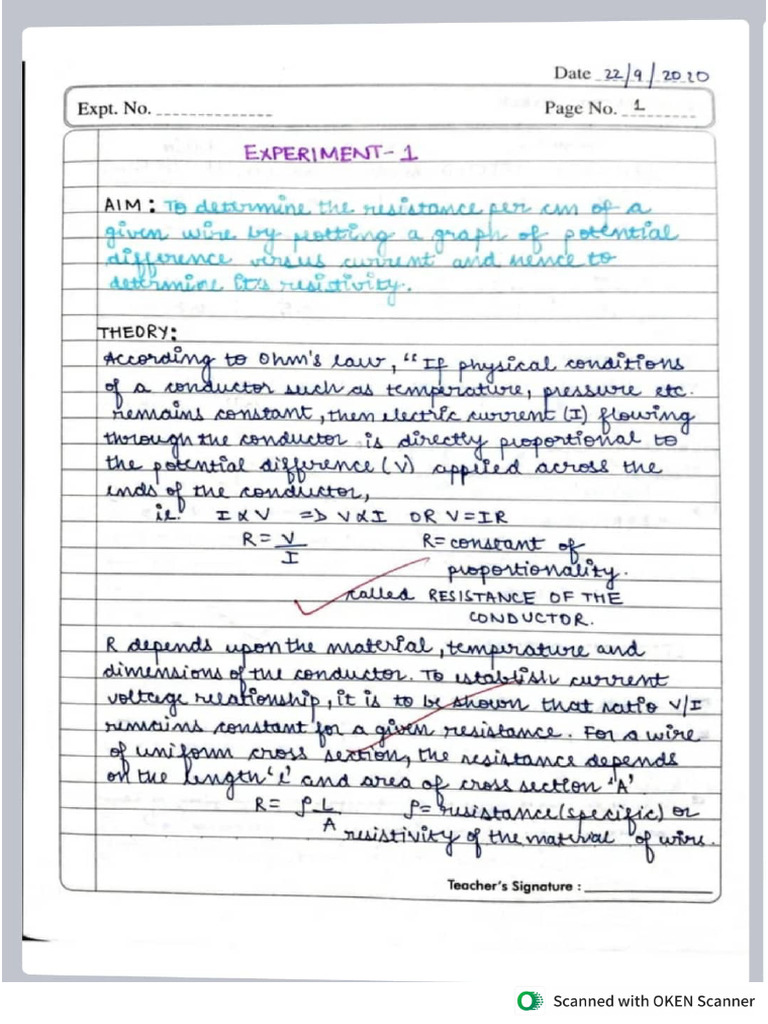 Date 22/9/2020
Expt. No.
Page No. 1
EXPERIMENT-1
AIM: To determine the resistance per cm of a
given wire by plotting a graph of potential
difference versus current and hence to
determine its resistivity.
THEORY:
According to Ohm's law, "If physical conditions
of a conductor such as temperature, pressure etc.
remains constant, then electric current (I) flowing
through the conductor is directly proportional to
the potential difference (V) applied across the
ends of the conductor,
ie. I ∝ V ⇒ V ∝ I OR V = IR
R = V/I R = constant of
proportionality.
called RESISTANCE OF THE
CONDUCTOR.
R depends upon the material, temperature and
dimensions of the conductor. To establish current
voltage relationship, it is to be shown that ratio V/I
remains constant for a given resistance. For a wire
of uniform cross section, the resistance depends
on the length 'l' and area of cross section 'A'
R = ρ L/A ρ = resistance (specific) or
resistivity of the material of wire.
Teacher's Signature :
Scanned with OKEN Scanner